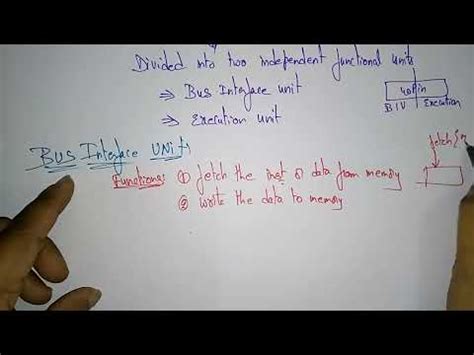 Divided into two independent functional units
⇒ Bus Interface unit
⇒ Execution unit
40Pin
BIU Execution
BUS Interface UNit
Functions: ① fetch the inst & data from memory
② write the data to memory
fetch